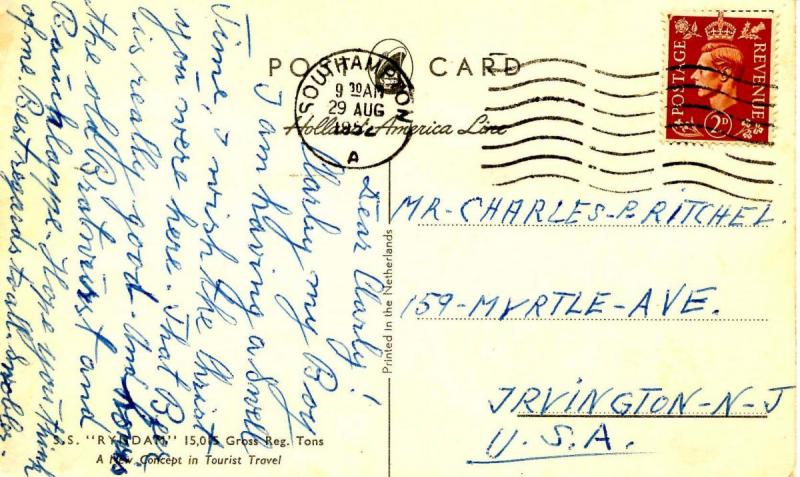 POST CARD
Holland-America Line
SOUTHAMPTON
9 30 AM
29 AUG
1952
A
POSTAGE REVENUE
2D
Dear Charly!
Charly my Boy
I am having a swell
Time, I wish the Christ
you were here. That Beer
is really good. And
the old Bratwurst and
Hope you think
of me. Best regards to all.
MR-CHARLES-P-RITCHEL.
159-MYRTLE-AVE.
IRVINGTON-N-J
U.S.A.
Printed in the Netherlands
S.S. "RYNDAM" 15,015 Gross Reg. Tons
A New Concept in Tourist Travel